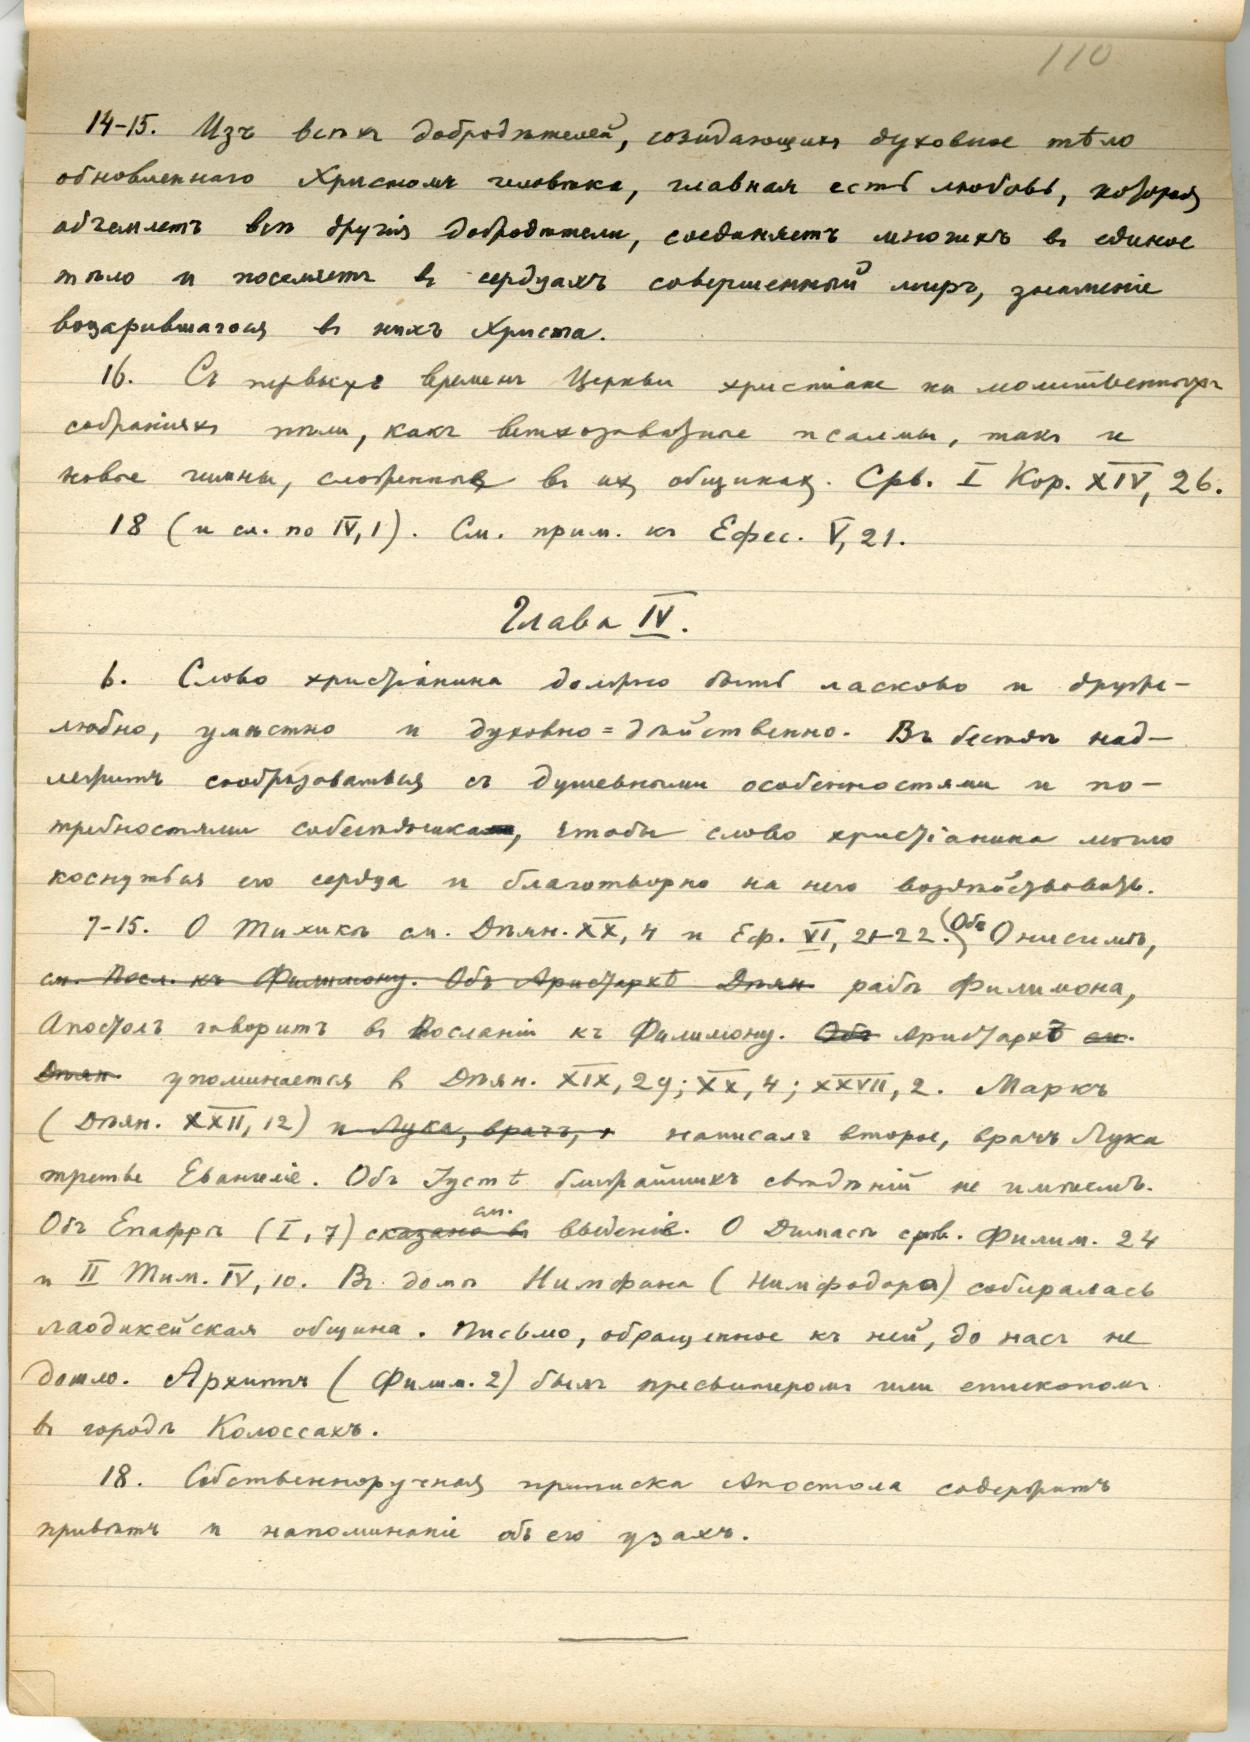 110
14-15. Изъ всѣхъ добродѣтелей, созидающихъ духовное тѣло
обновленнаго Христомъ человѣка, главная есть любовь, которая
объемлетъ всѣ другія добродѣтели, соединяетъ многихъ въ единое
тѣло и поселяетъ въ сердцахъ совершенный миръ, знаменіе
воцарившагося въ нихъ Христа.
16. Съ первыхъ временъ Церкви христіане на молитвенныхъ
собраніяхъ пѣли, какъ ветхозавѣтные псалмы, такъ и
новые гимны, сложенные въ их общинах. Срв. I Кор. XIV, 26.
18 (и сл. по IV, 1). См. прим. къ Ефес. V, 21.
Глава IV.
6. Слово христіанина должно быть ласково и друже-
любно, умѣстно и духовно=дѣйственно. Въ бесѣдѣ над-
лежитъ сообразоваться съ душевными особенностями и по-
требностями собесѣдника, чтобы слово христіанина могло
коснуться его сердца и благотворно на него воздѣйствовать.
7-15. О Тихикѣ см. Дѣян. XX, 4 и Еф. VI, 21-22. Объ Онисимѣ,
см. Посл. къ Филимону. Объ Аристархѣ Дѣян. рабѣ Филимона,
Апостолъ говоритъ въ Посланіи къ Филимону. Объ Аристархъ см.
Дѣян. упоминается в Дѣян. XIX, 29; XX, 4; XXVII, 2. Маркъ
(Дѣян. XXII, 12) и Лука, врачъ, написалъ второе, врачъ Лука
третье Евангеліе. Объ Іустѣ ближайшихъ свѣдѣній не имѣемъ.
см.
Объ Епафрѣ (I, 7) сказано въ введеніе. О Димасѣ срв. Филим. 24
и II Тим. IV, 10. Въ домѣ Нимфана (Нимфодора) собиралась
лаодикейская община. Письмо, обращенное къ ней, до насъ не
дошло. Архиппъ (Филим. 2) былъ пресвитеромъ или епископомъ
въ городѣ Колоссахъ.
18. Собственноручная приписка Апостола содержитъ
привѣтъ и напоминаніе объ его узахъ.